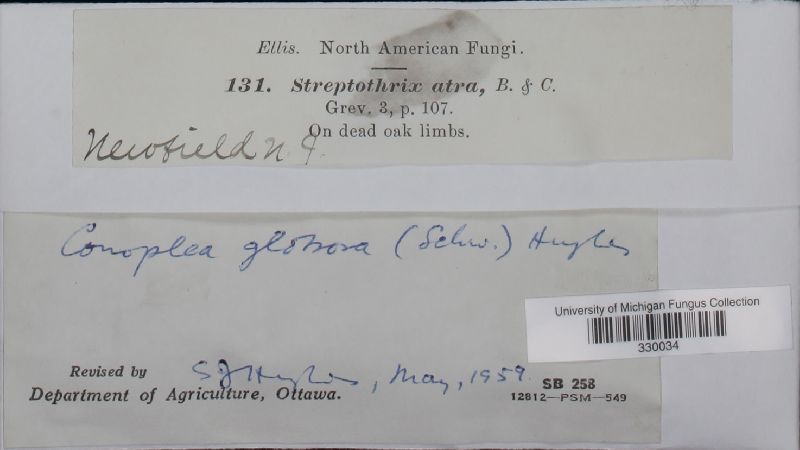 Ellis. North American Fungi.
131. Streptothrix atra, B. & C.
Grev. 3, p. 107.
On dead oak limbs.
Newfield N. J.
Conoplea globosa (Schw.) Hughes
University of Michigan Fungus Collection
330034
Revised by S J Hughes, May, 1959.
Department of Agriculture, Ottawa.
SB 258
12812-PSM-549